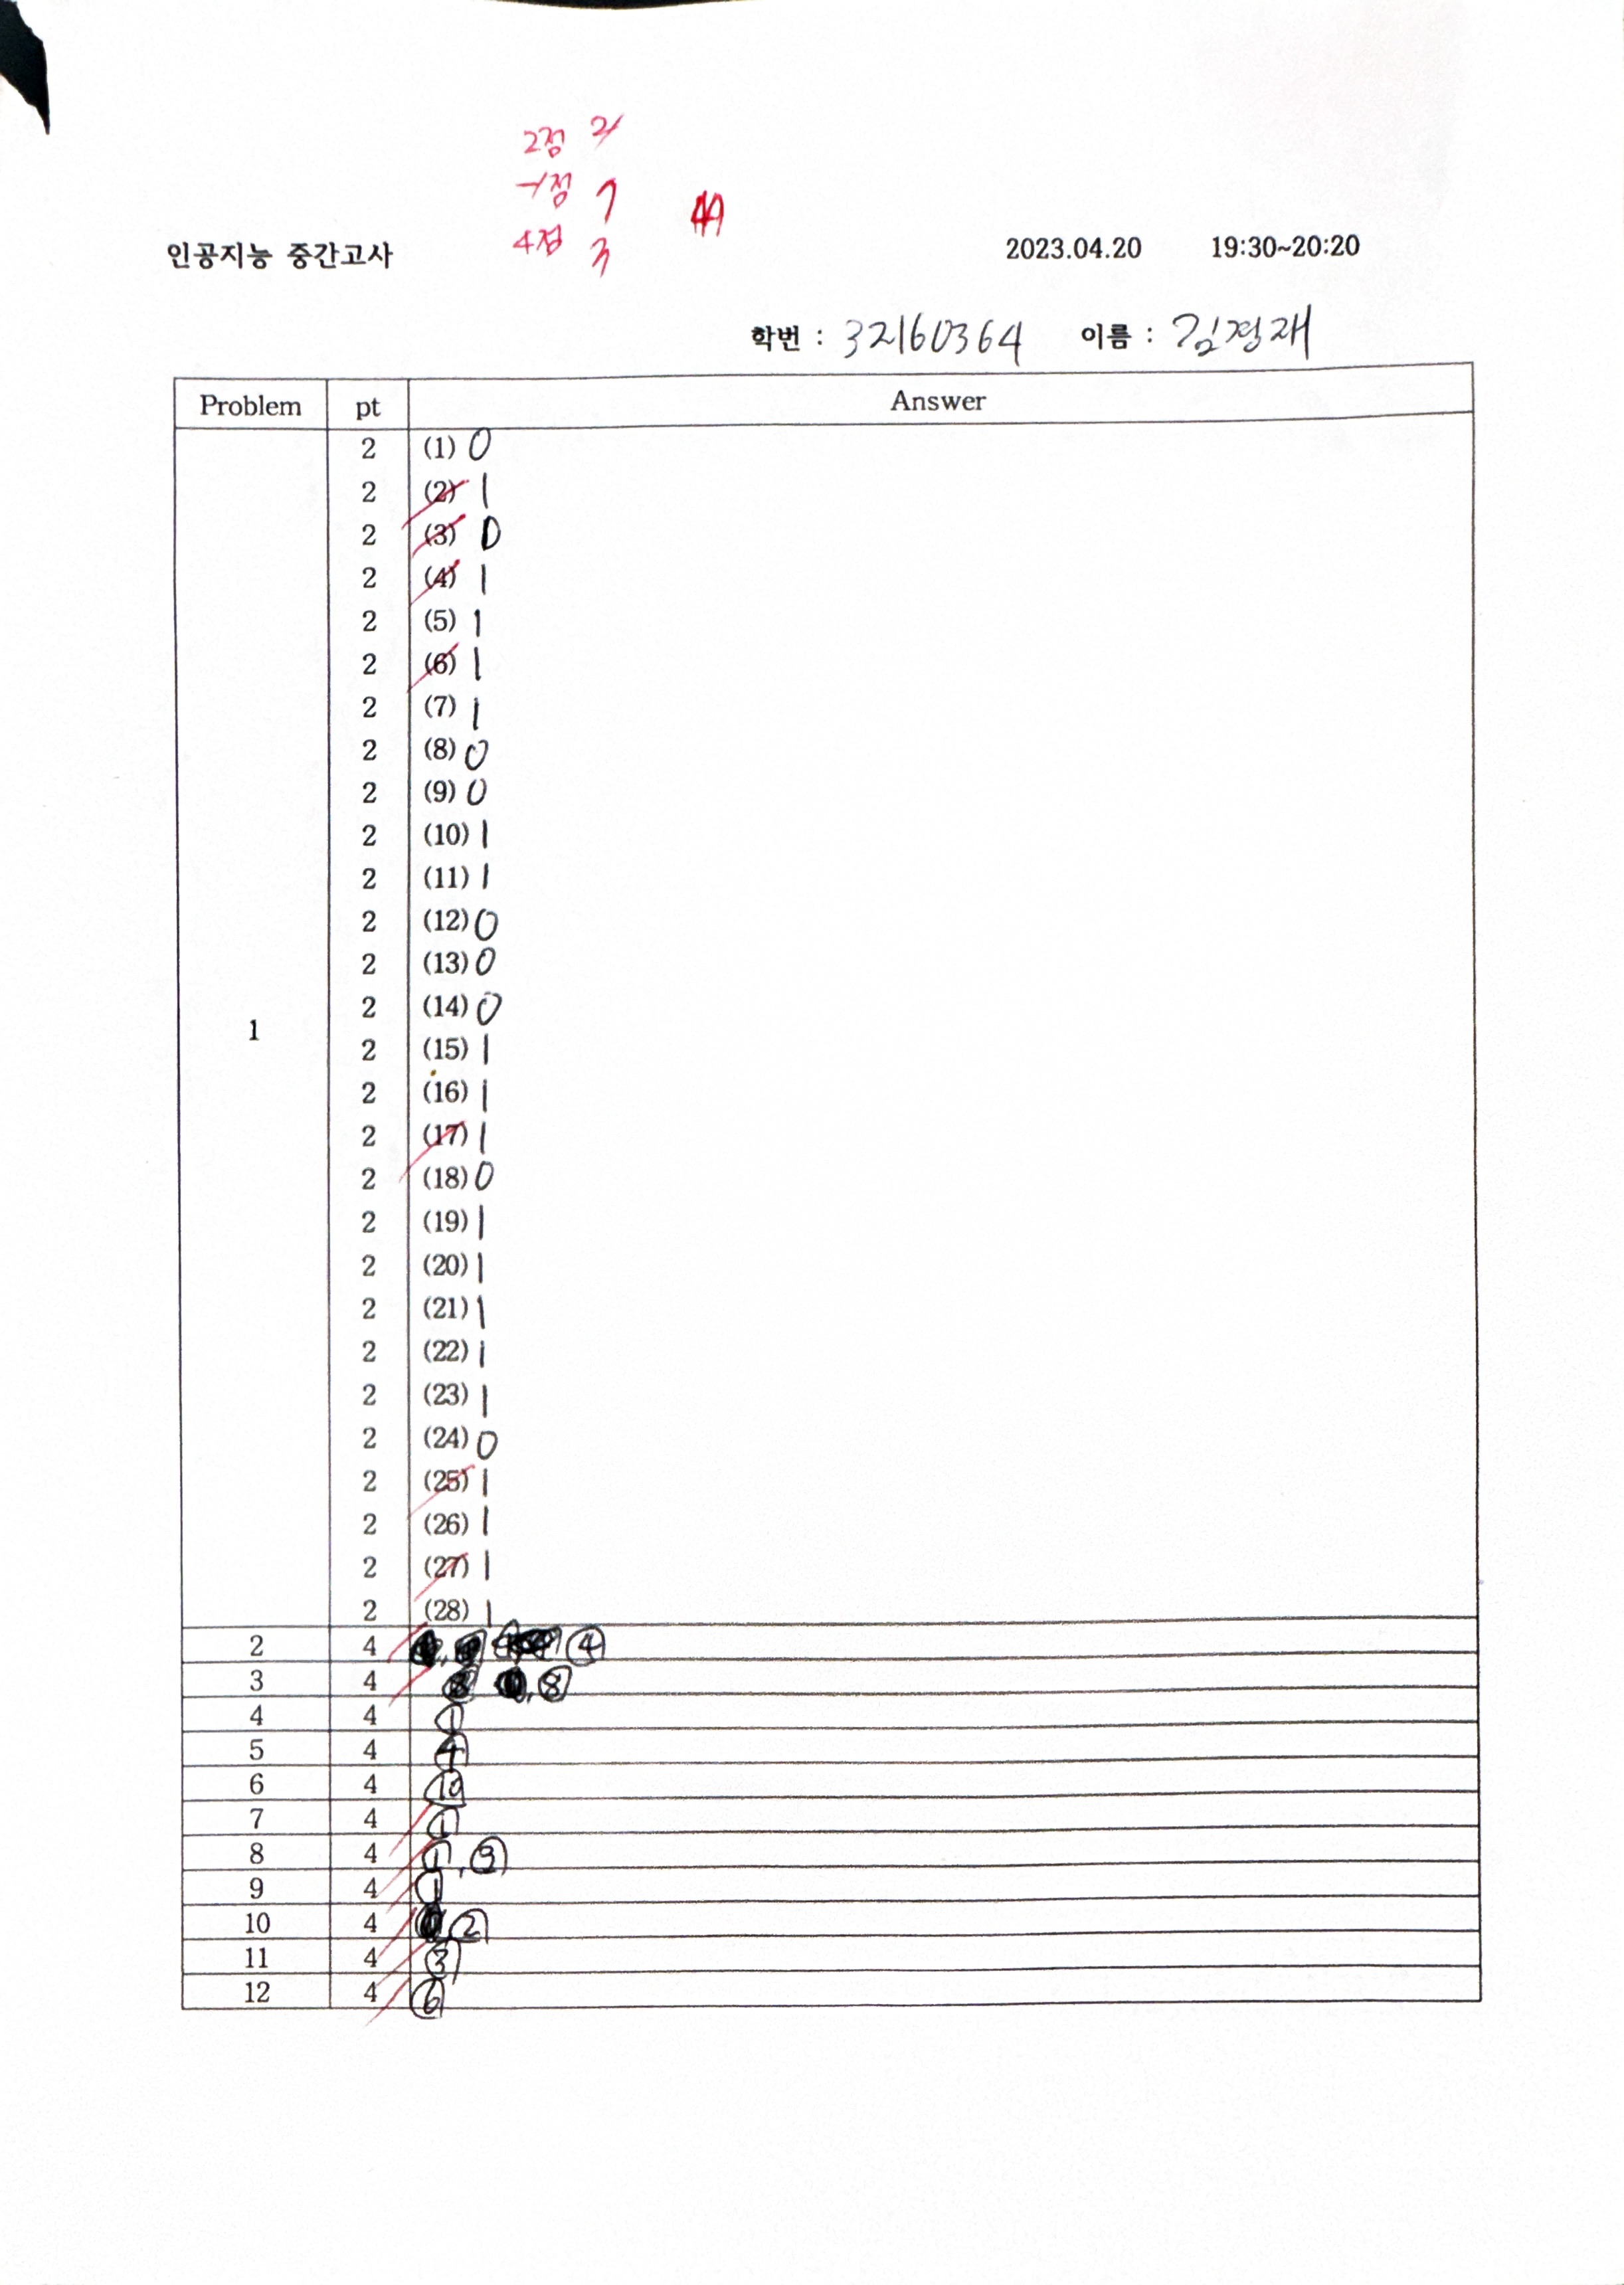 2점 21
-1점 7
4점 3
44
인공지능 중간고사 2023.04.20 19:30~20:20
학번 : 32160364 이름 : 김정재
Problem pt Answer
2 (1) 0
2 (2) 1
2 (3) 0
2 (4) 1
2 (5) 1
2 (6) 1
2 (7) 1
2 (8) 0
2 (9) 0
2 (10) 1
2 (11) 1
2 (12) 0
2 (13) 0
2 (14) 0
1
2 (15) 1
2 (16) 1
2 (17) 1
2 (18) 0
2 (19) 1
2 (20) 1
2 (21) 1
2 (22) 1
2 (23) 1
2 (24) 0
2 (25) 1
2 (26) 1
2 (27) 1
2 (28) 1
2 4 ④
3 4 ⑧
4 4 ①
5 4 ④
6 4 ⑩
7 4 ①
8 4 ①, ③
9 4 ①
10 4 ②
11 4 ③
12 4 ⑥